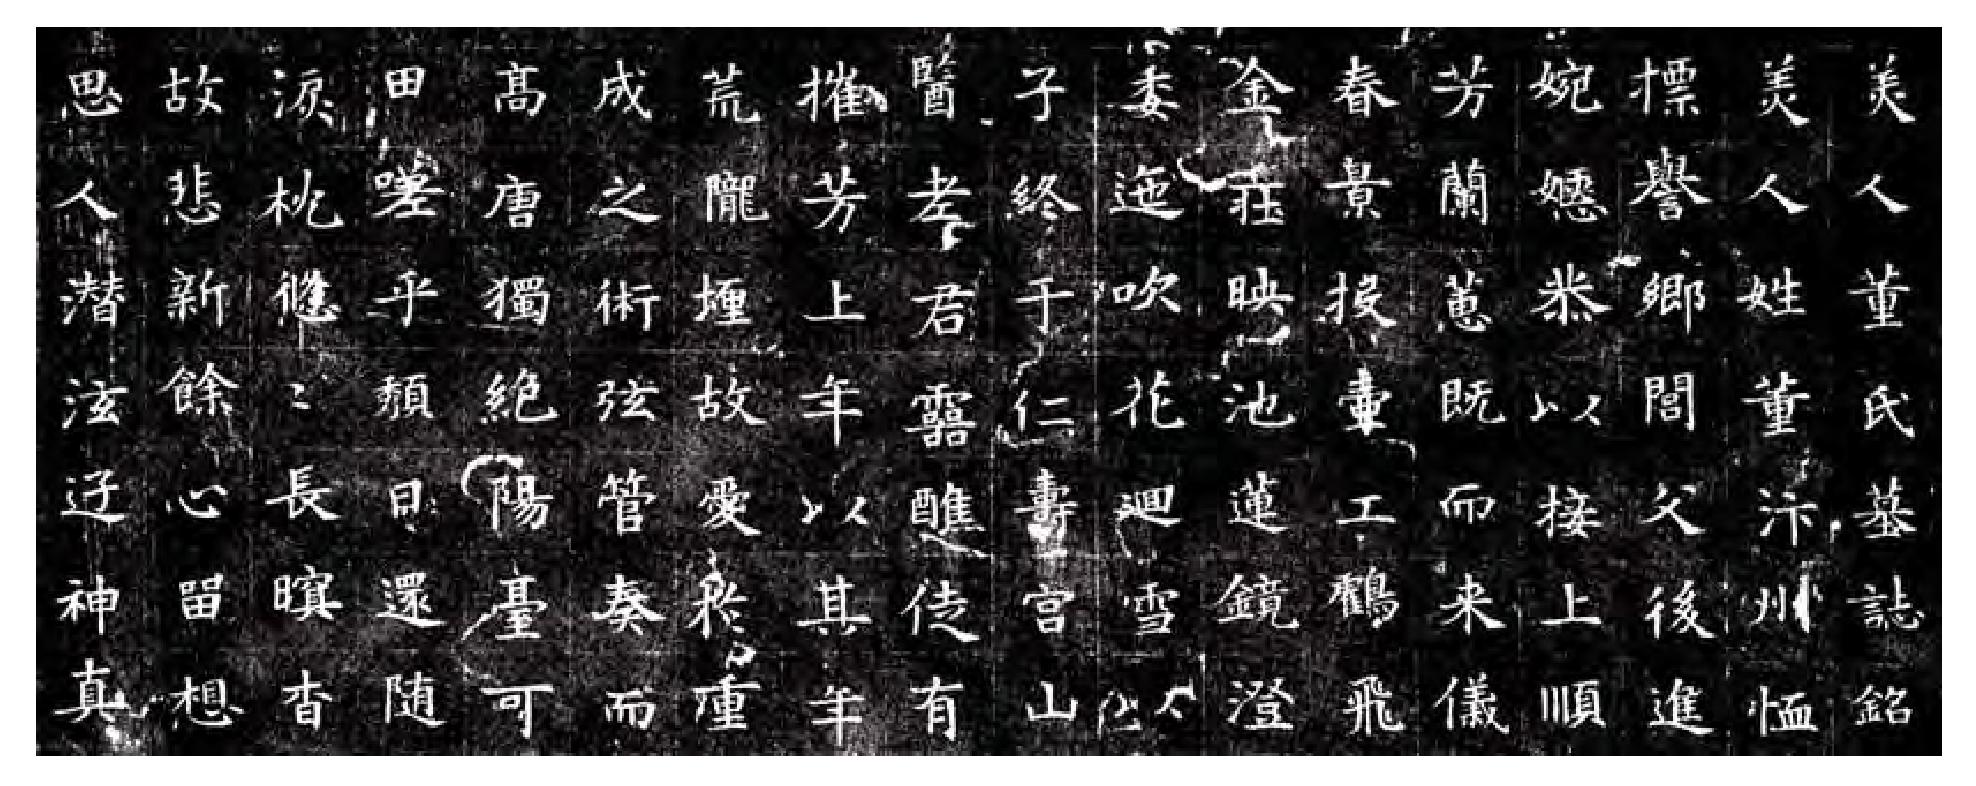 美人董氏墓誌銘
美人姓董汴州恤
摽譽鄉閭父後進
婉嫕恭以接上順
芳蘭蕙既而来儀
春景投壷工鶴飛
金莊映池蓮鏡澄
委迤吹花迴雪以
子終于仁壽宮山
醫老君靈醮徒有
摧芳上年以其年
荒隴埋故愛於重
成之術弦管奏而
高唐獨絕陽臺可
田嗟乎頹日還随
淚枕悠〻長暝杳
故悲新餘心留想
思人潛泫迓神真